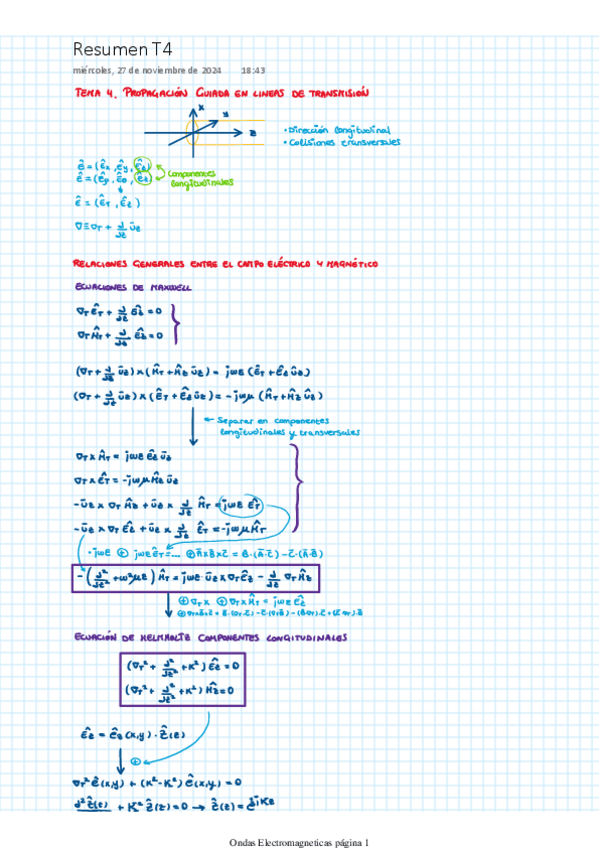 Resumen T4
miércoles, 27 de noviembre de 2024 18:43
TEMA 4. PROPAGACIÓN GUIADA EN LINEAS DE TRANSMISIÓN
x
y
z
• Dirección longitudinal
• Colisiones transversales
ê = (êx, êy, êz)
ê = (êρ, êθ, êz)
componentes longitudinales
ê = (êT, êz)
∇ ≡ ∇T + ∂/∂z ūz
RELACIONES GENERALES ENTRE EL CAMPO ELÉCTRICO Y MAGNÉTICO
ECUACIONES DE MAXWELL
∇T ÊT + ∂/∂z Êz = 0
∇T ĤT + ∂/∂z Êz = 0
(∇T + ∂/∂z ūz) × (ĤT + Ĥz ūz) = jωε (ÊT + Êz ūz)
(∇T + ∂/∂z ūz) × (ÊT + Êz ūz) = -jωμ (ĤT + Ĥz ūz)
← Separar en componentes
longitudinales y transversales
∇T × ĤT = jωε Êz ūz
∇T × ÊT = -jωμ Ĥz ūz
-ūz × ∇T Ĥz + ūz × ∂/∂z ĤT = jωε ÊT
-ūz × ∇T Êz + ūz × ∂/∂z ÊT = -jωμ ĤT
• jωε ⊕ jωε ÊT = ... ⊕ Ā×B̄×C̄ = B̄·(Ā·C̄) - C̄·(Ā·B̄)
-(∂²/∂z² + ω²με) ĤT = jωε ūz × ∇T Êz - ∂/∂z ∇T Ĥz
⊕ ∇T × ⊕ ∇T × ĤT = jωε Êz
ECUACIÓN DE HELMHOLTZ COMPONENTES LONGITUDINALES
(∇T² + ∂²/∂z² + K²) Êz = 0
(∇T² + ∂²/∂z² + K²) Ĥz = 0
Êz = êz(x,y) · Ẑ(z)
∇T² ê(x,y) + (K² - K²) ê(x,y) = 0
∂² Ẑ(z) + K² Ẑ(z) = 0 → Ẑ(z) = e^jKz
Ondas Electromagneticas página 1